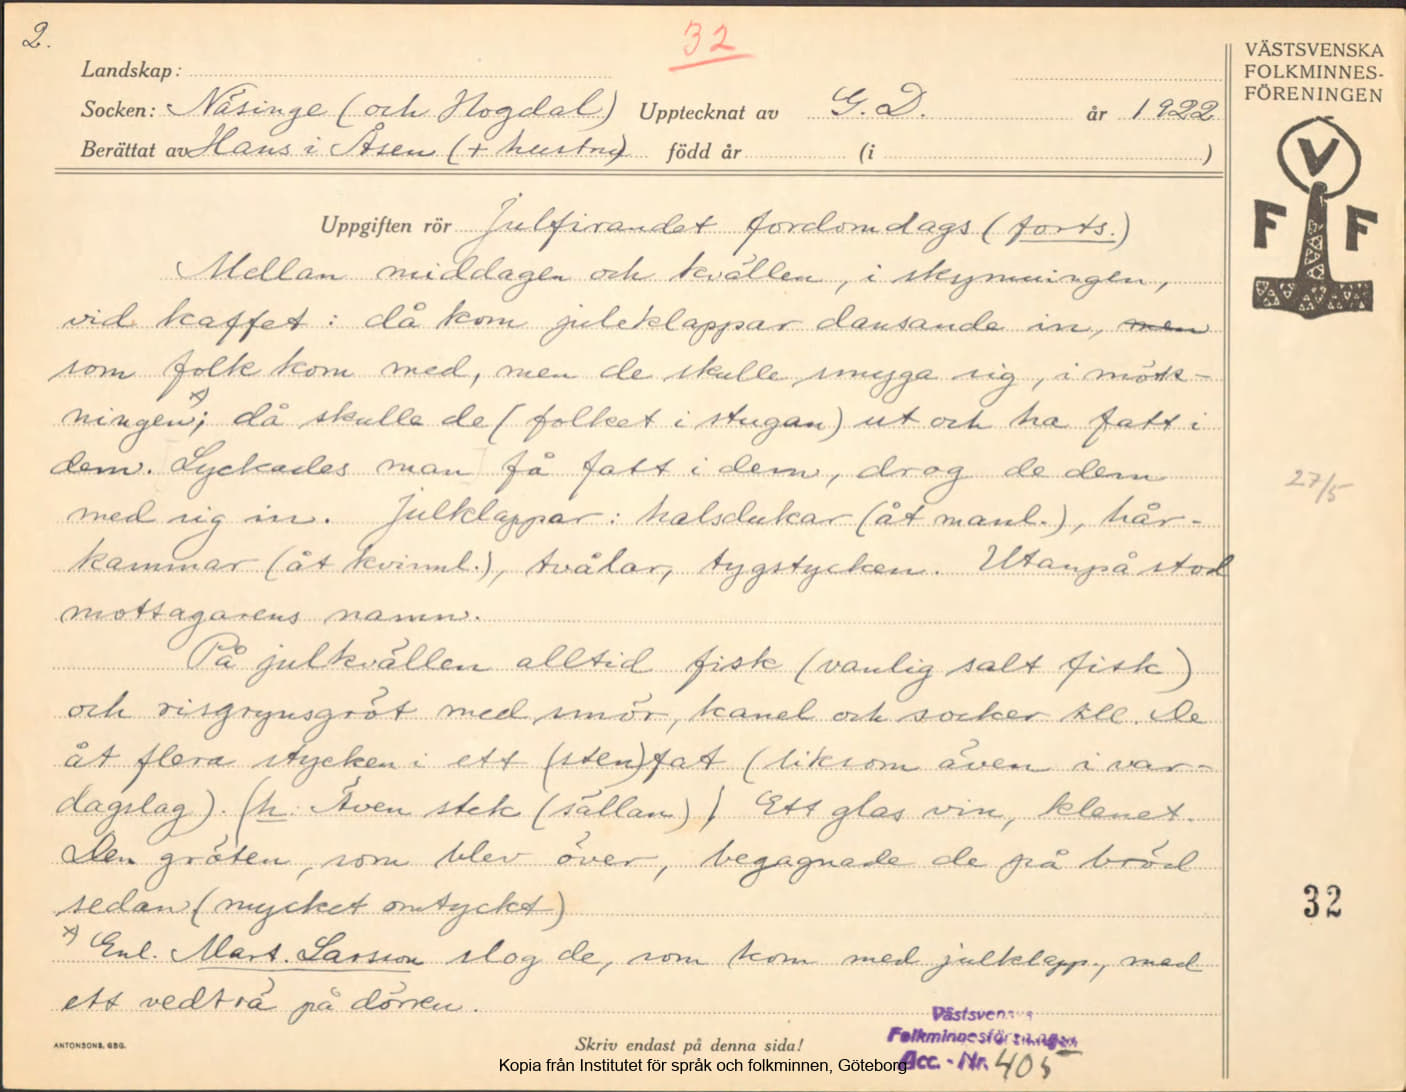 2.
32
Landskap:
Socken: Näsinge (och Hogdal) Upptecknat av G. D. år 1922
Berättat av Hans i Åsen (+ hustru) född år (i )
VÄSTSVENSKA
FOLKMINNES-
FÖRENINGEN
V
F F
Uppgiften rör Julfirandet fordomdags (forts.)
Mellan middagen och kvällen, i skymningen,
vid kaffet: då kom juleklappar dansande in, men
som folk kom med, men de skulle smyga sig, i mörk-
ningen x); då skulle de (folket i stugan) ut och ha fatt i
dem. Lyckades man få fatt i dem, drog de dem
med sig in. Julklappar: halsdukar (åt manl.), hår-
kammar (åt kvinnl.), tvålar, tygstycken. Utanpå stod
mottagarens namn.
På julkvällen alltid fisk (vanlig salt fisk)
och risgrynsgröt med smör, kanel och socker till. De
åt flera stycken i ett (sten)fat (liksom även i var-
dagslag). (h: Även stek (sällan)) Ett glas vin, klenet.
Den gröten, som blev över, begagnade de på bröd
sedan (mycket omtyckt)
x) Enl. Mart. Larsson slog de, som kom med julklapp., med
ett vedträ på dörren.
27/5
32
ANTONSONS, GBG.
Skriv endast på denna sida!
Västsvenska
Folkminnesföreningen
Acc. - Nr. 405
Kopia från Institutet för språk och folkminnen, Göteborg